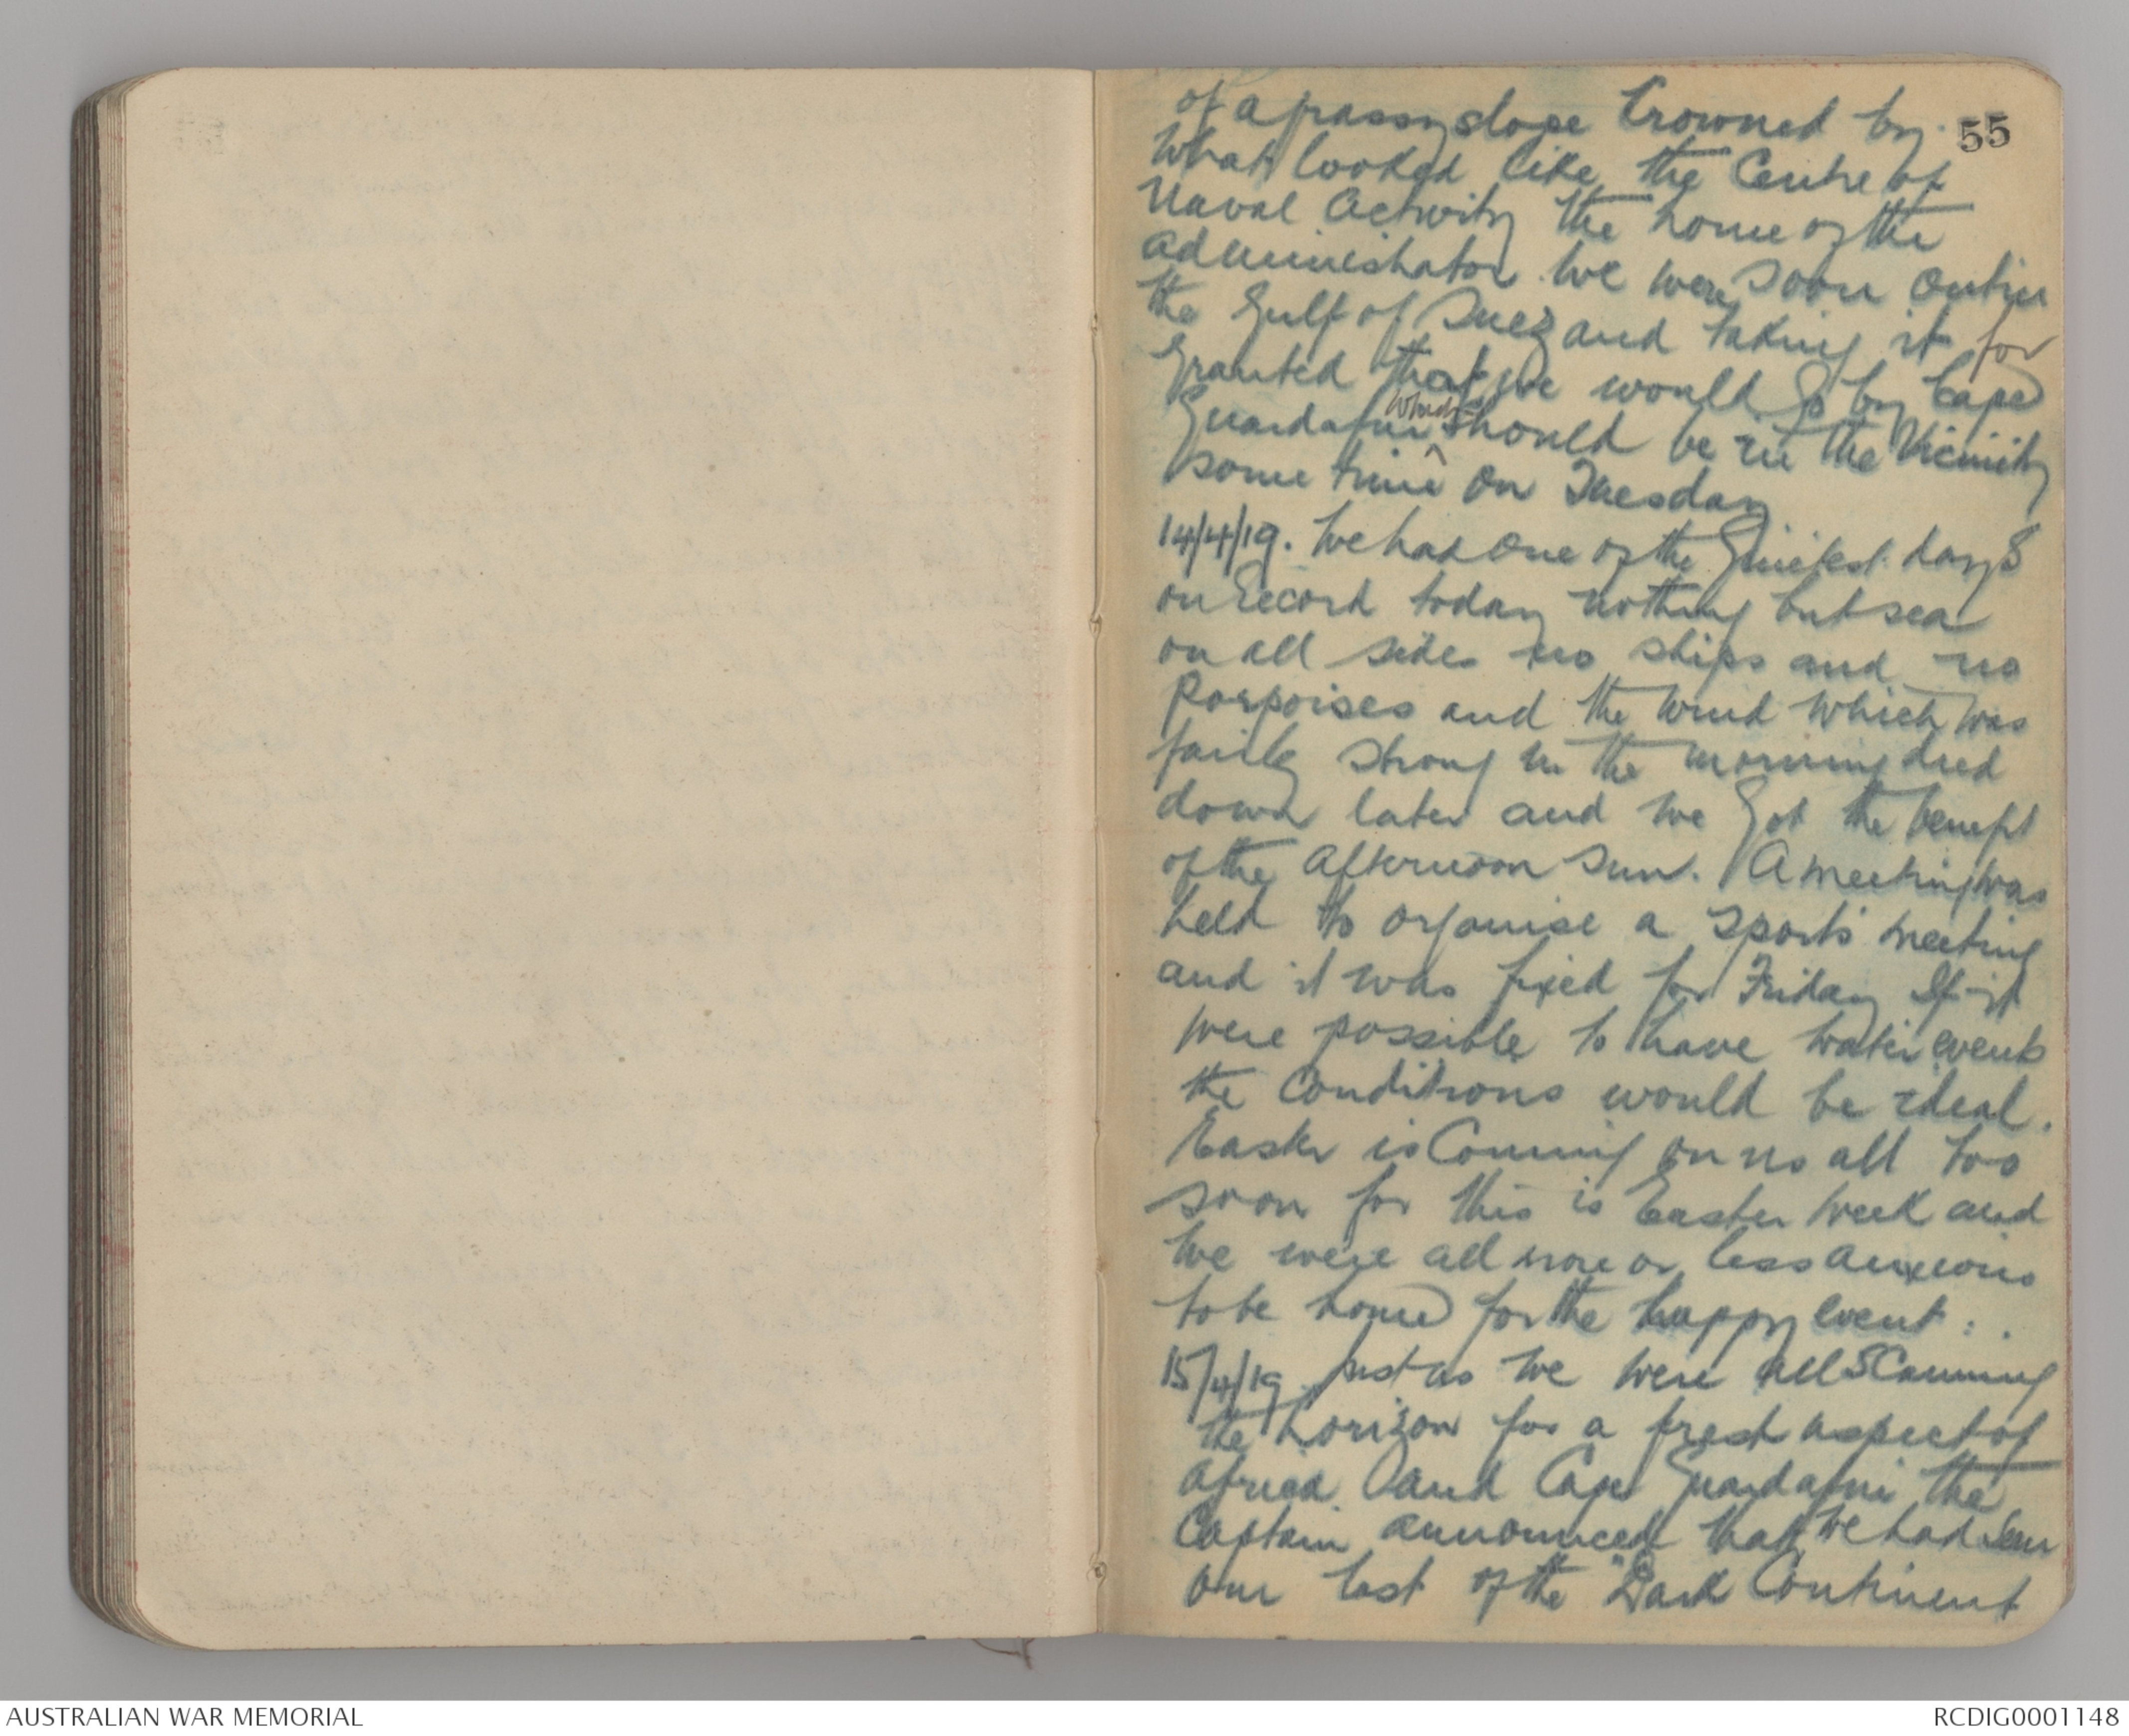 55
of a grassy slope Crowned by
what looked like the Centre of
Naval Activity the home of the
Administrator. We were soon out in
the Gulf of Suez and taking it for
granted that we would go by Cape
Guardafui which should be in the Vicinity
some time on Tuesday
14/4/19. We had one of the Quietest days
on Record today nothing but sea
on all sides no ships and no
Porpoises and the wind which was
fairly strong in the morning died
down later and we got the benefit
of the afternoon sun. A meeting was
held to organise a sports meeting
and it was fixed for Friday If it
were possible to have water events
the Conditions would be ideal.
Easter is Coming on us all too
soon for this is Easter week and
We were all more or less anxious
to be home for the happy event : .
15/4/19. Just as we were all Scanning
the horizon for a fresh aspect of
Africa and Cape Guardafui the
Captain announced that we had seen
our last of the "Dark Continent
AUSTRALIAN WAR MEMORIAL
RCDIG0001148